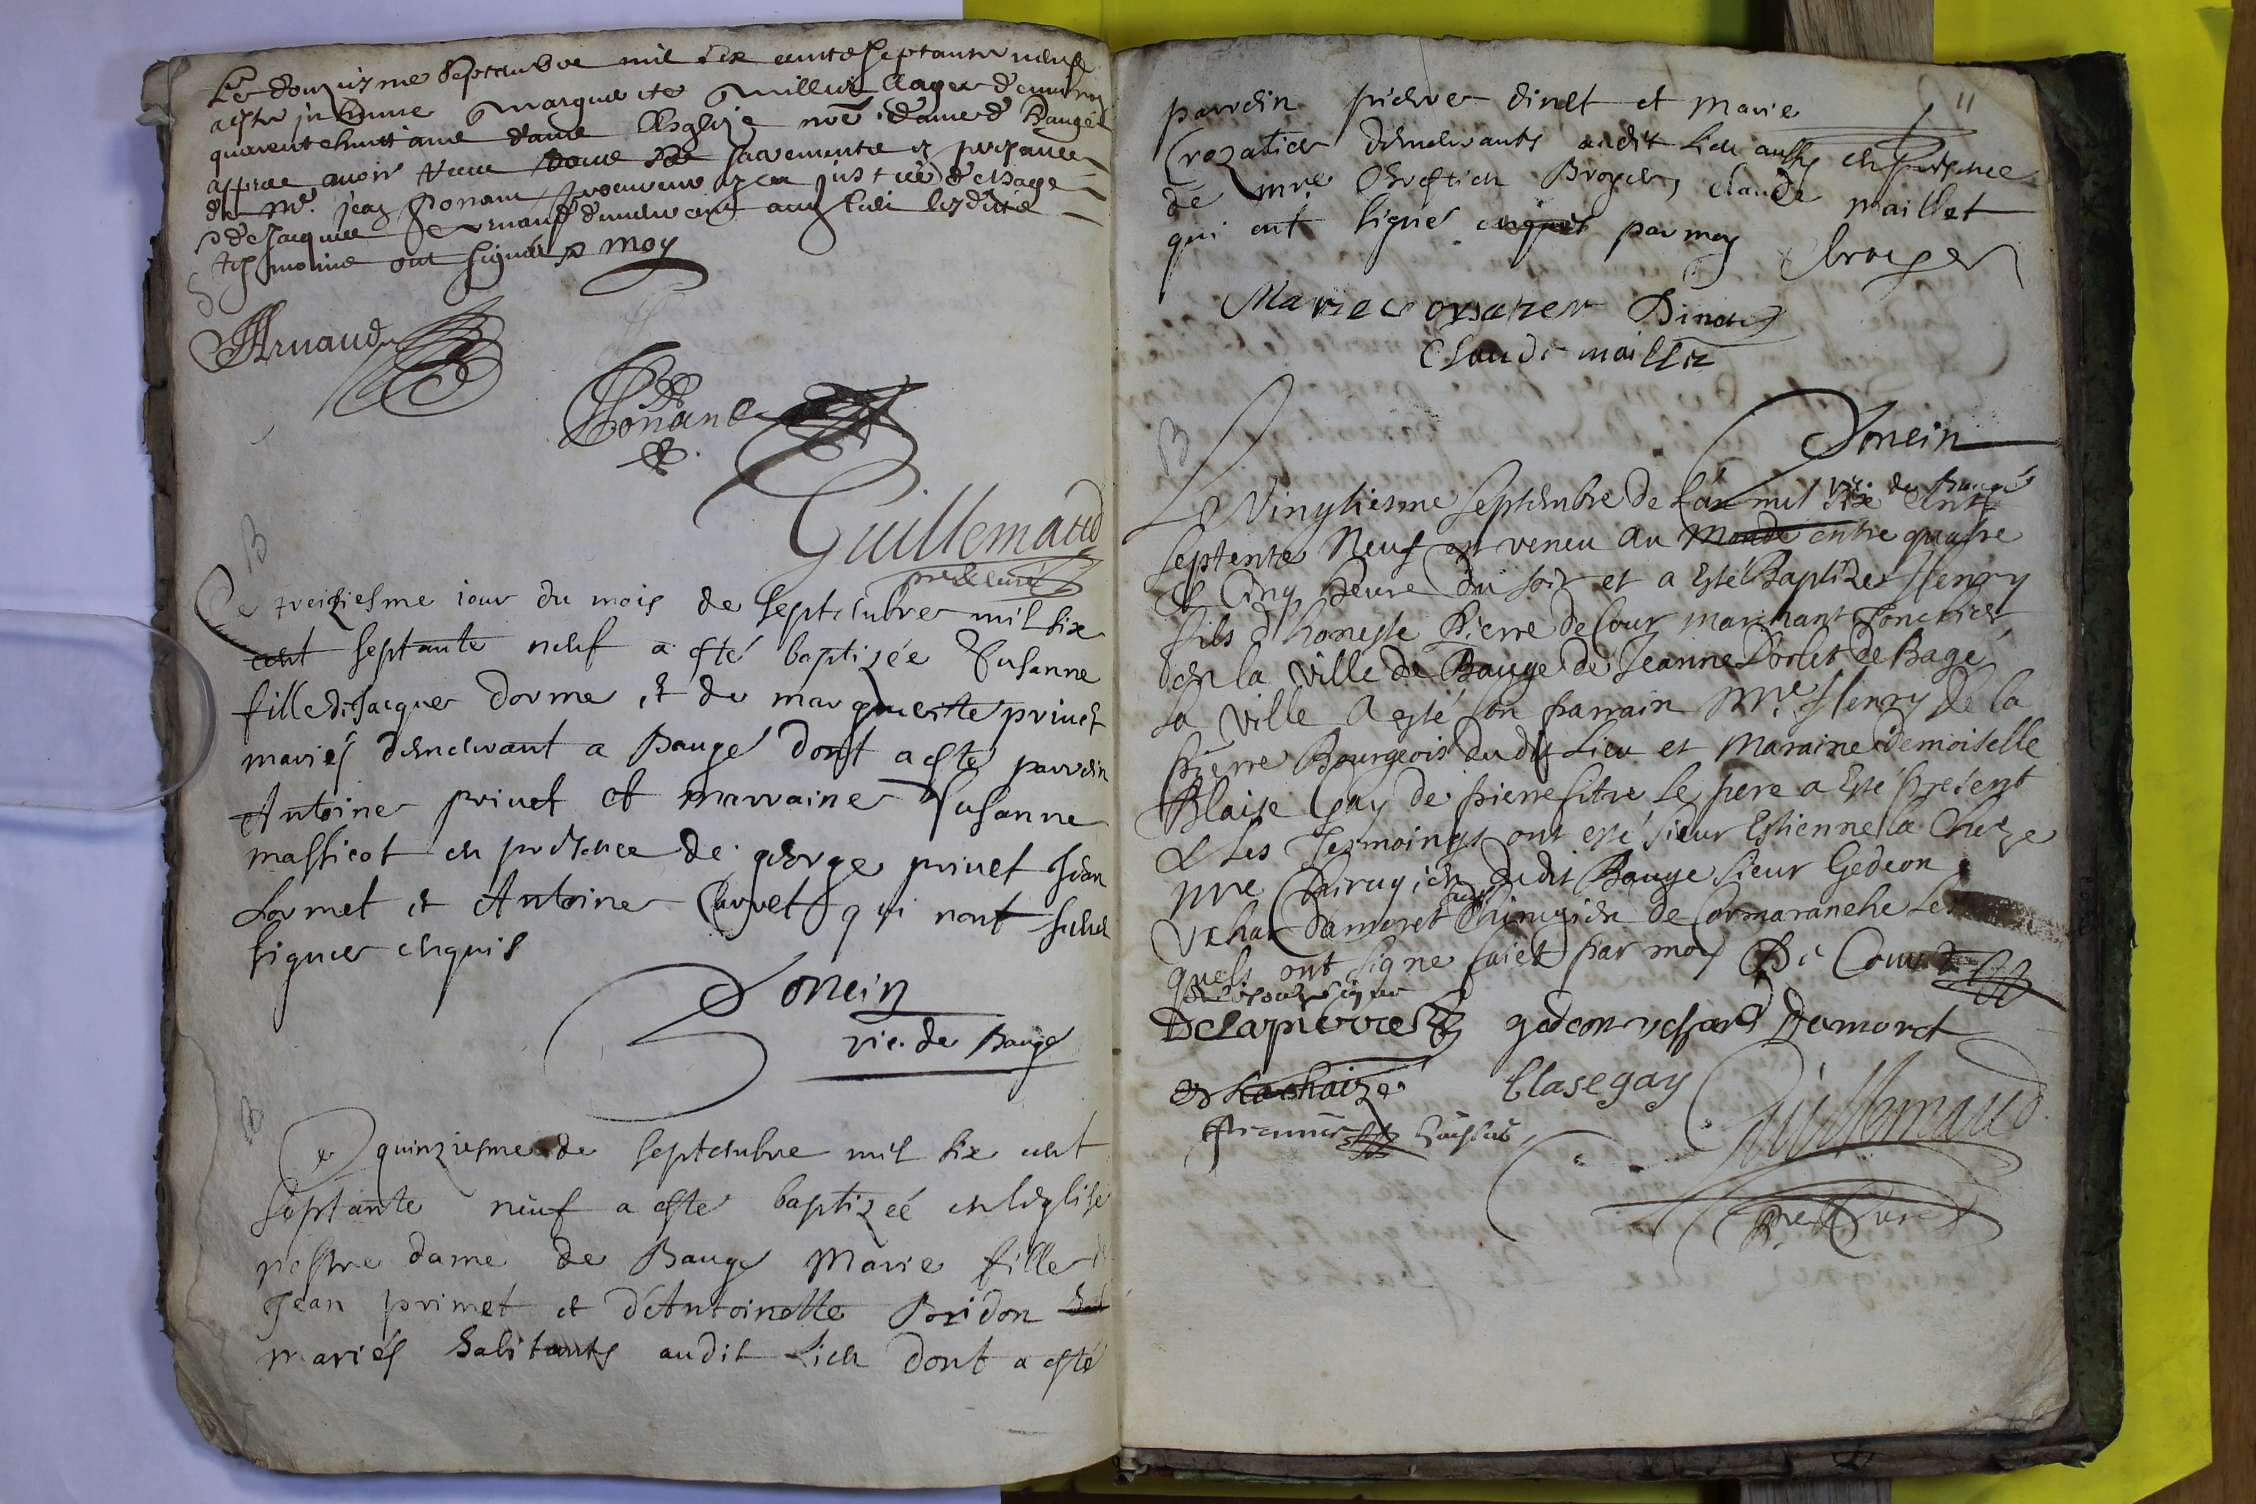 Le douziesme Septembre mil six cents septante neuf
a esté inhumé Marguerite aagée d'environ
quarente huict ans dans l'Esglize nre. dame de Baugé
appres avoir receu tous les sacrements en presance
de Me. jean Ponant procureur en la justice de Bage
& de Jacques Arnaud demeurant aud. lieu lesdits
tesmoins ont signé & moy
Arnaud
Ponand
Guillemaud
pre & curé
B
Le treiziesme iour du mois de septembre mil six
cent septante neuf a esté baptizée Susanne
fille de Jacques dorme, et de marguerite privet
mariés demeurant a Baugé dont a esté parrein
Antoine privet et marraine Susanne
massicot en presence de george privet Jean
Lormet et Antoine Carvet qui nont sceu
signer enquis
Donein
vic. de Baugé
B
Le quinziesme de septembre mil six cent
septante neuf a esté baptizéé en leglise
nostre dame de Baugé Marie fille de
Jean privet et d'Antoinette Bridon
mariés habitants audit lieu dont a esté
11
parrein pierre dinet et Marie
Crozatier demeurants audit lieu aussy en presence
de mre Chrestien Broyer, claude maillet
qui ont signé enquis par moy Cbroyer
Marie crozatier Dinet
Claude maillet
Donein
vic. de Baugé
B
Le Vingtiesme septembre de l'an mil six cents
septente Neuf est veneu au Monde entre quatre
& Cinq heure du soir et a Esté Baptizé Henry
fils d'honeste Pierre de Cour marchant
en la ville de Bauge de Jeanne de Bage
la ville A esté son parrain Mre. Henry de la
Pierre Bourgeois dudit Lieu et Maraine Demoiselle
Blaise Gay de pierrefitre Le pere a Esté present
& Les Tesmoings ont esté sieur Estienne la Cheze
Mre Chirugien dudit Bauge sieur Gedeon
Vchar Damoret aussy Chirugien de Cormaranche Les
quels ont signé faict par moy De Cour
Delapierre gedeon vchard Damoret
E Lachaize blasegay
Guillemaud
Pre & Curé